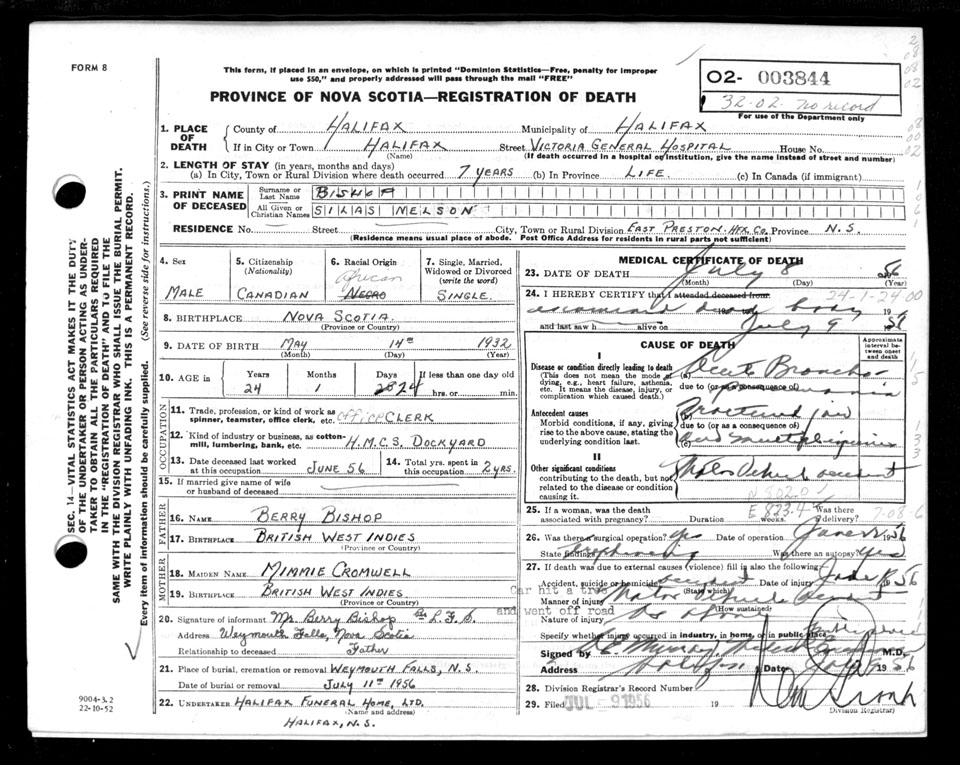 FORM 8
This form, if placed in an envelope, on which is printed "Dominion Statistics—Free, penalty for improper
use $50," and properly addressed will pass through the mail "FREE"
PROVINCE OF NOVA SCOTIA—REGISTRATION OF DEATH
O2- 003844
32-02. no record
For use of the Department only
SEC. 14—VITAL STATISTICS ACT MAKES IT THE DUTY
OF THE UNDERTAKER OR PERSON ACTING AS UNDER-
TAKER TO OBTAIN ALL THE PARTICULARS REQUIRED
IN THE "REGISTRATION OF DEATH" AND TO FILE THE
SAME WITH THE DIVISION REGISTRAR WHO SHALL ISSUE THE BURIAL PERMIT.
WRITE PLAINLY WITH UNFADING INK. THIS IS A PERMANENT RECORD.
Every item of information should be carefully supplied. (See reverse side for instructions.)
1. PLACE OF DEATH
County of HALIFAX Municipality of HALIFAX
If in City or Town HALIFAX Street VICTORIA GENERAL HOSPITAL House No.
(Name) (If death occurred in a hospital or institution, give the name instead of street and number)
2. LENGTH OF STAY (in years, months and days)
(a) In City, Town or Rural Division where death occurred 7 YEARS (b) In Province LIFE. (c) In Canada (if immigrant)
3. PRINT NAME OF DECEASED
Surname or Last Name BISHOP
All Given or Christian Names SILAS MELSON
RESIDENCE No. Street City, Town or Rural Division EAST PRESTON. HFX. CO. Province N.S.
(Residence means usual place of abode. Post Office Address for residents in rural parts not sufficient)
4. Sex
MALE
5. Citizenship
(Nationality)
CANADIAN
6. Racial Origin
African
NEGRO
7. Single, Married,
Widowed or Divorced
(write the word)
SINGLE.
8. BIRTHPLACE NOVA SCOTIA.
(Province or Country)
9. DATE OF BIRTH MAY 14TH 1932
(Month) (Day) (Year)
10. AGE in Years Months Days If less than one day old
24 1 24 hrs. or min.
OCCUPATION
11. Trade, profession, or kind of work as
spinner, teamster, office clerk, etc. office CLERK
12. Kind of industry or business, as cotton-
mill, lumbering, bank, etc. H.M.C.S. DOCKYARD
13. Date deceased last worked
at this occupation JUNE 56
14. Total yrs. spent in
this occupation 2 yrs.
15. If married give name of wife
or husband of deceased
FATHER
16. NAME BERRY BISHOP
17. BIRTHPLACE BRITISH WEST INDIES
(Province or Country)
MOTHER
18. MAIDEN NAME MIMMIE CROMWELL
19. BIRTHPLACE BRITISH WEST INDIES
(Province or Country)
20. Signature of informant Mr. Berry Bishop
Address Weymouth Falls, Nova Scotia
Relationship to deceased Father
21. Place of burial, cremation or removal WEYMOUTH FALLS, N.S.
Date of burial or removal JULY 11TH 1956
22. UNDERTAKER HALIFAX FUNERAL HOME, LTD.
(Name and address)
HALIFAX, N.S.
9004-3.2
22-10-52
MEDICAL CERTIFICATE OF DEATH
23. DATE OF DEATH July 8 1956
(Month) (Day) (Year)
24-1-24 00
24. I HEREBY CERTIFY that I attended deceased from
body 19
and last saw h alive on July 9 19
CAUSE OF DEATH
Approximate
interval between
onset and death
I
Disease or condition directly leading to death
(This does not mean the mode of
dying, e.g., heart failure, asthenia,
etc. It means the disease, injury, or
complication which caused death.)
(a) Acute Broncho-
due to (or as a consequence of) pneumonia
Antecedent causes
Morbid conditions, if any, giving
rise to the above cause, stating the
underlying condition last.
(b) Fractured jaw
due to (or as a consequence of)
(c) and multiple injuries
II
Other significant conditions
contributing to the death, but not
related to the disease or condition
causing it.
Motor Vehicle accident
N 802.0
E 823.4
25. If a woman, was the death
associated with pregnancy? Duration weeks. Was there
a delivery?
26. Was there a surgical operation? Yes Date of operation June 1956
State findings Was there an autopsy? Yes
27. If death was due to external causes (violence) fill in also the following
Accident, suicide or homicide? accident Date of injury June 1956
(State which)
Car hit a tree
and went off road
Manner of injury Motor Vehicle accident
(How sustained)
Nature of injury
Specify whether injury occurred in industry, in home, or in public place
Signed by Murray M.D.
Address Halifax Date 1956
28. Division Registrar's Record Number
29. Filed JUL 9 1956 19
Division Registrar